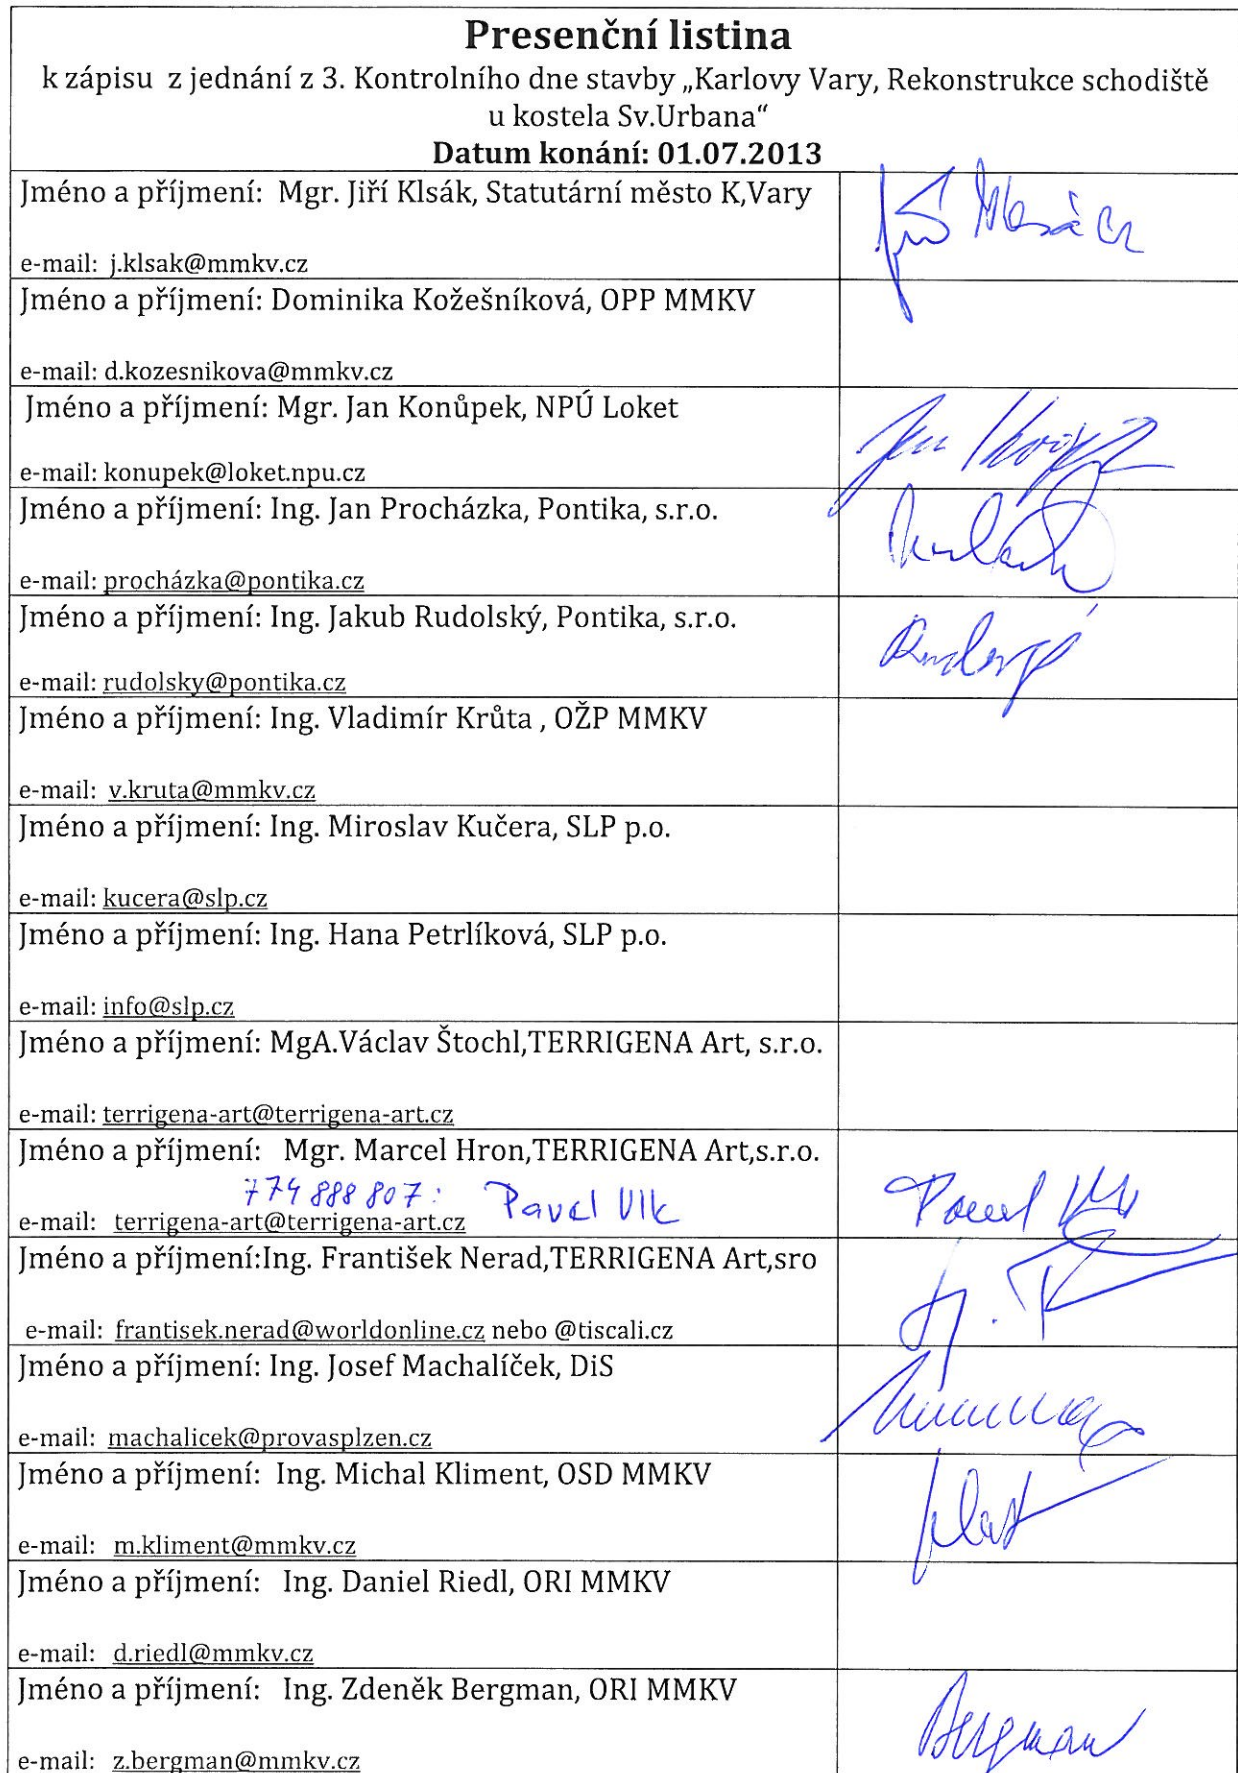 Presenční listina
k zápisu z jednání z 3. Kontrolního dne stavby „Karlovy Vary, Rekonstrukce schodiště
u kostela Sv.Urbana“
Datum konání: 01.07.2013
Jméno a příjmení: Mgr. Jiří Klsák, Statutární město K,Vary
e-mail: j.klsak@mmkv.cz
Jméno a příjmení: Dominika Kožešníková, OPP MMKV
e-mail: d.kozesnikova@mmkv.cz
Jméno a příjmení: Mgr. Jan Konůpek, NPÚ Loket
e-mail: konupek@loket.npu.cz
Jméno a příjmení: Ing. Jan Procházka, Pontika, s.r.o.
e-mail: procházka@pontika.cz
Jméno a příjmení: Ing. Jakub Rudolský, Pontika, s.r.o.
e-mail: rudolsky@pontika.cz
Jméno a příjmení: Ing. Vladimír Krůta , OŽP MMKV
e-mail: v.kruta@mmkv.cz
Jméno a příjmení: Ing. Miroslav Kučera, SLP p.o.
e-mail: kucera@slp.cz
Jméno a příjmení: Ing. Hana Petrlíková, SLP p.o.
e-mail: info@slp.cz
Jméno a příjmení: MgA.Václav Štochl,TERRIGENA Art, s.r.o.
e-mail: terrigena-art@terrigena-art.cz
Jméno a příjmení: Mgr. Marcel Hron,TERRIGENA Art,s.r.o.
774 888 807: Pavel Vlk
e-mail: terrigena-art@terrigena-art.cz
Pavel Vlk
Jméno a příjmení:Ing. František Nerad,TERRIGENA Art,sro
e-mail: frantisek.nerad@worldonline.cz nebo @tiscali.cz
Jméno a příjmení: Ing. Josef Machalíček, DiS
e-mail: machalicek@provasplzen.cz
Jméno a příjmení: Ing. Michal Kliment, OSD MMKV
e-mail: m.kliment@mmkv.cz
Jméno a příjmení: Ing. Daniel Riedl, ORI MMKV
e-mail: d.riedl@mmkv.cz
Jméno a příjmení: Ing. Zdeněk Bergman, ORI MMKV
Bergman
e-mail: z.bergman@mmkv.cz